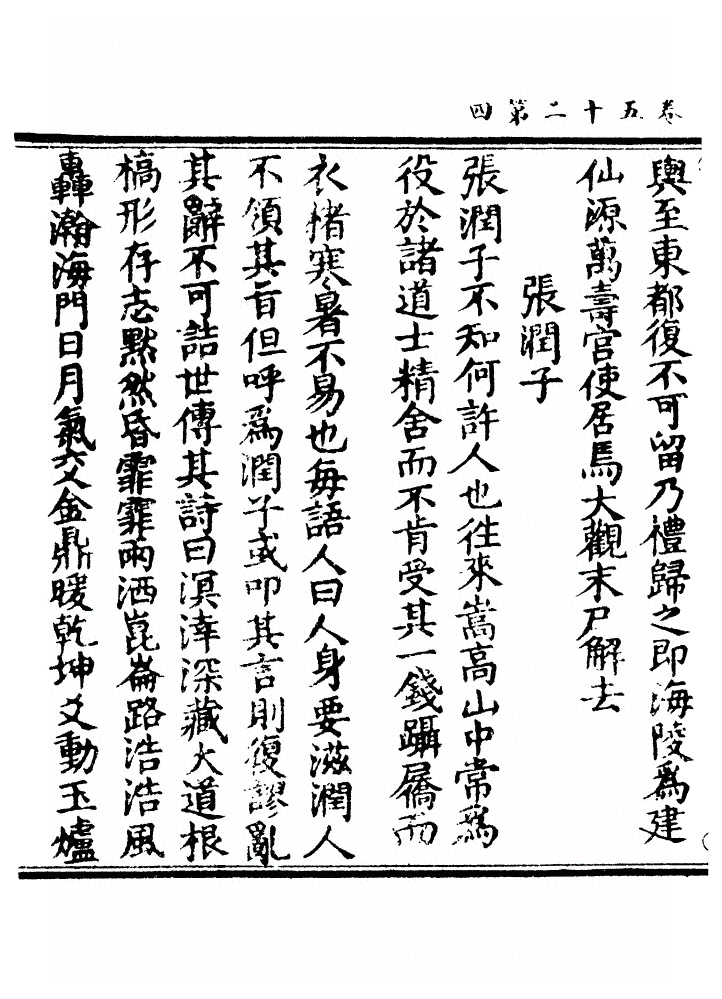 卷五十二第四
輿至東都復不可留乃禮歸之即海陵爲建
仙源萬壽宮使居焉大觀末尸解去
張潤子
張潤子不知何許人也往來嵩高山中常爲
役於諸道士精舍而不肯受其一錢躡屩而
衣楮寒暑不易也每語人曰人身要滋潤人
不領其旨但呼爲潤子或叩其言則復謬亂
其辭不可詰世傳其詩曰溟涬深藏大道根
槁形存志默然昏霏霏雨洒崑崙路浩浩風
轟瀚海門日月氣交金鼎暖乾坤爻動玉爐